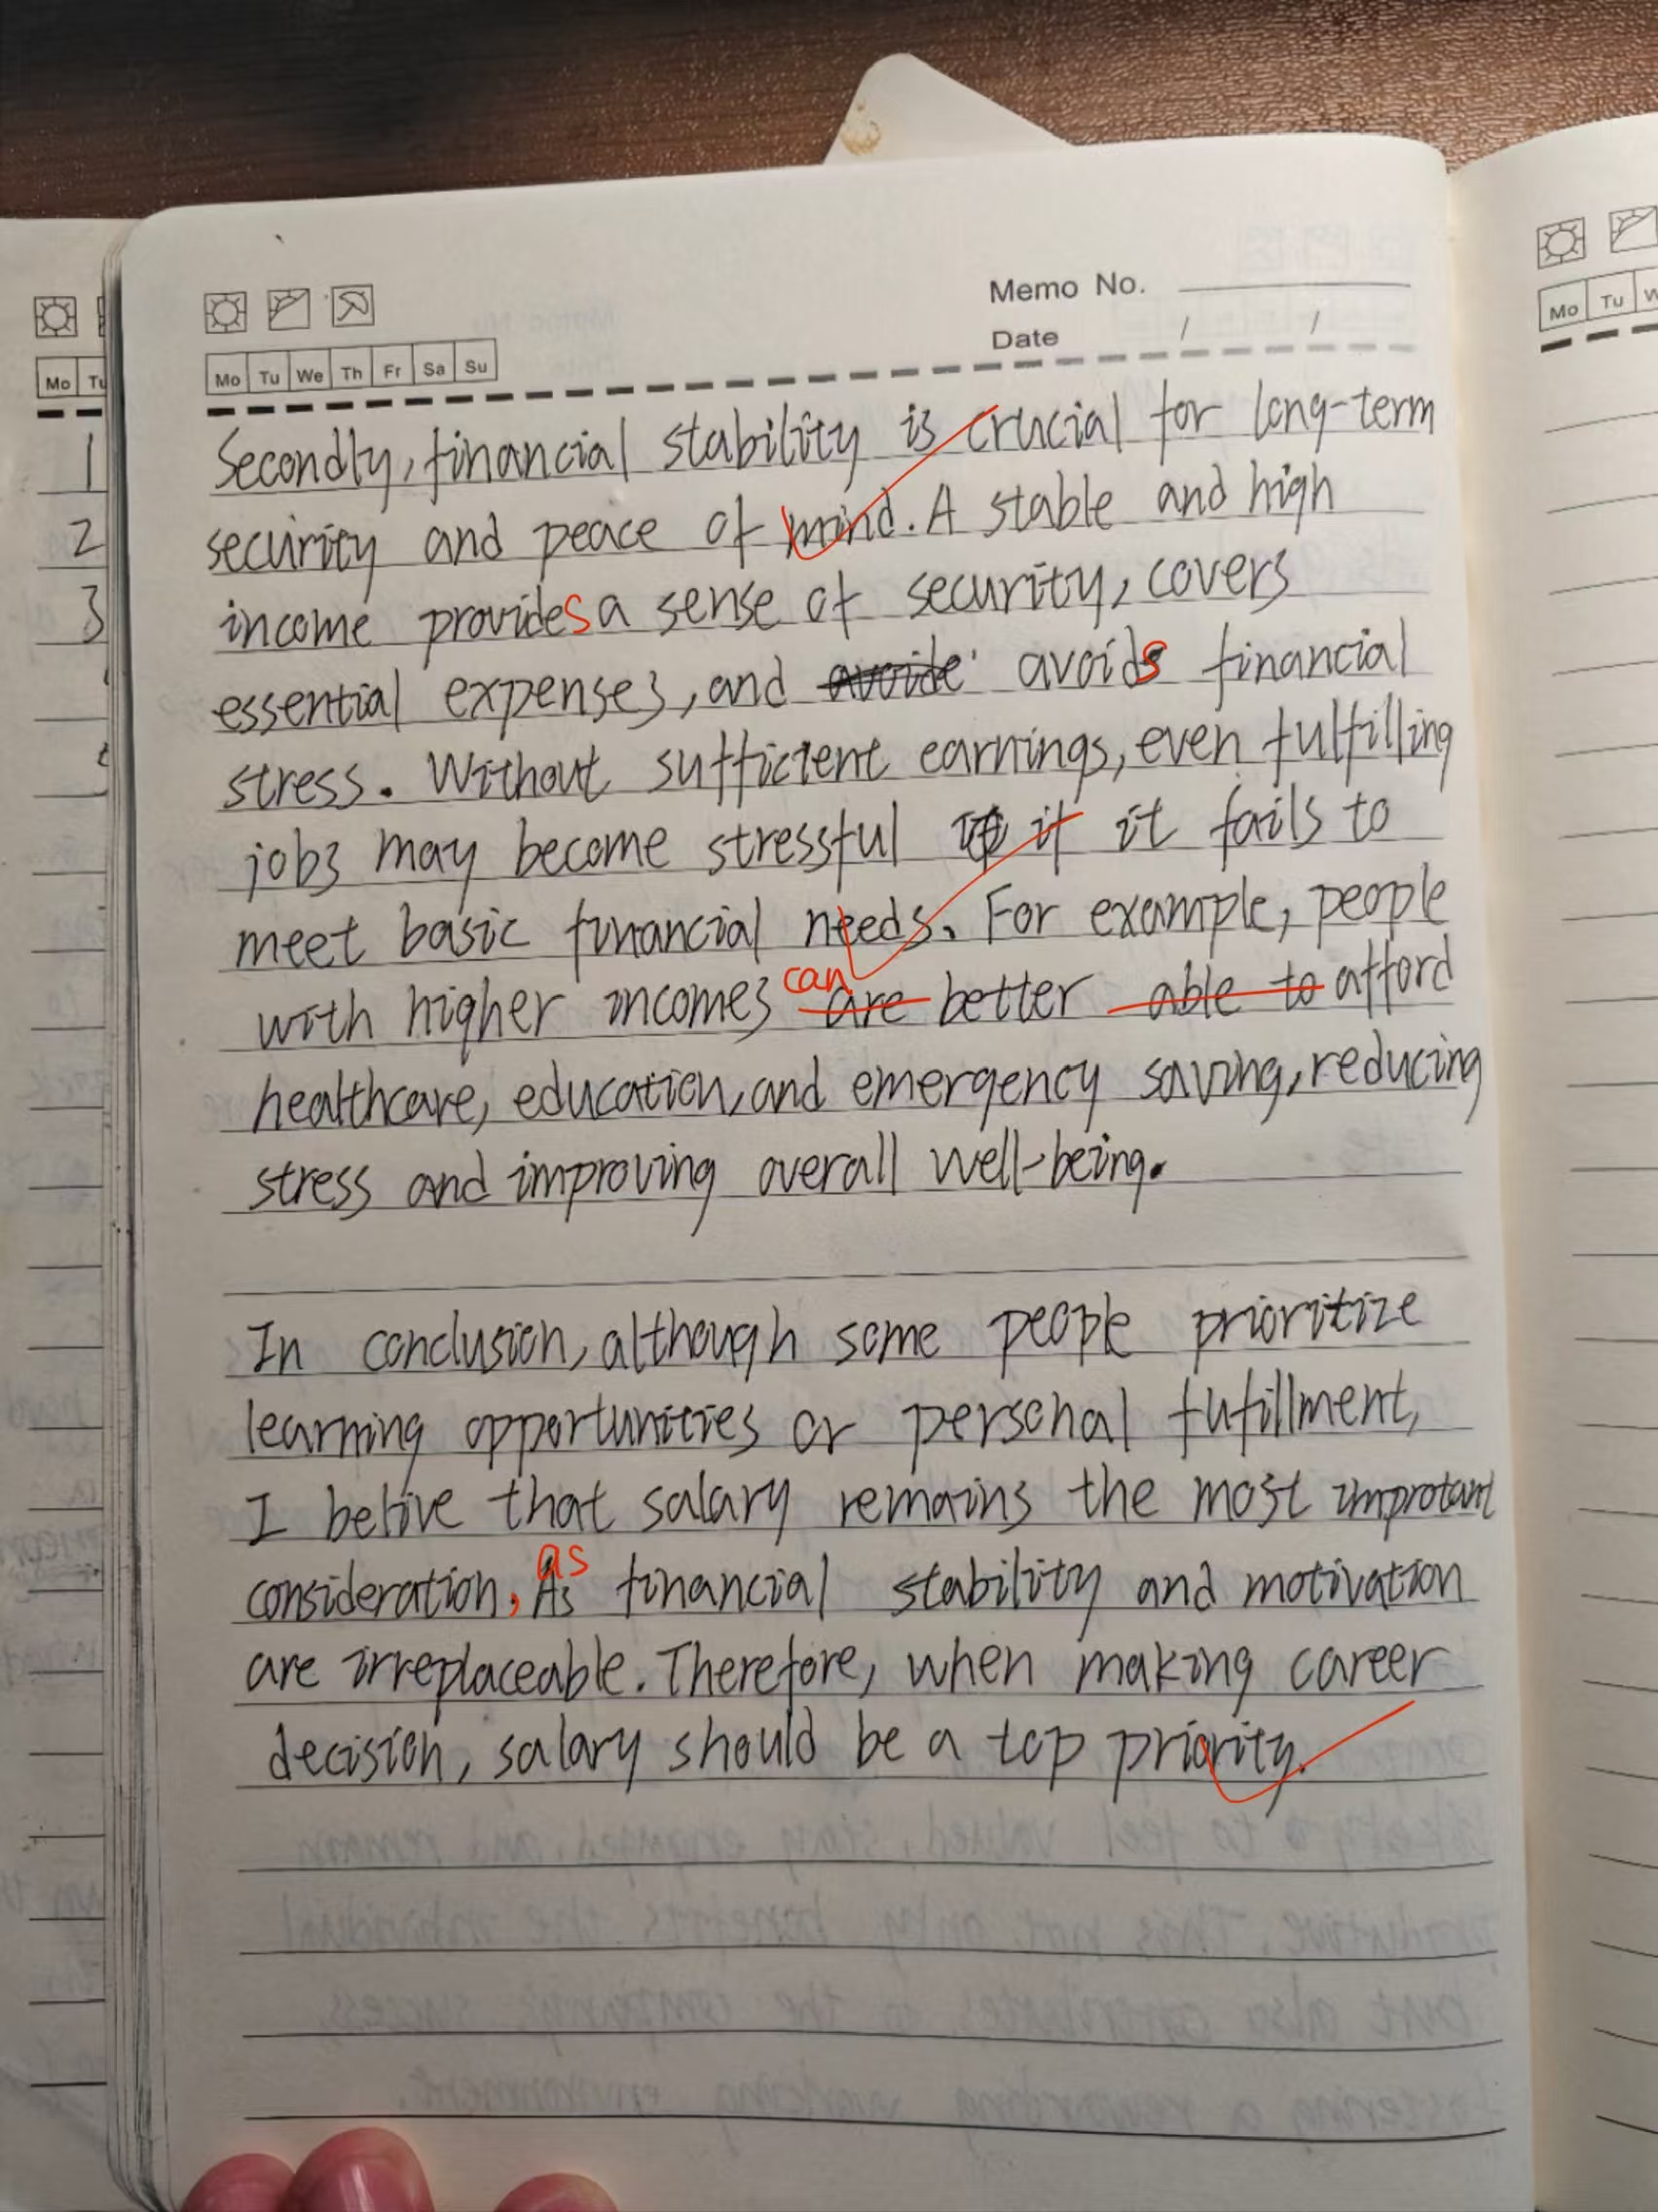 Memo No.
Date / /
Mo Tu We Th Fr Sa Su
Mo Tu
Mo Tu W
1
2
3
Secondly, financial stability is crucial for long-term
security and peace of mind. A stable and high
income provides a sense of security, covers
essential expenses, and avoide avoids financial
stress. Without sufficient earnings, even fulfilling
jobs may become stressful if it fails to
meet basic financial needs. For example, people
can
with higher incomes are better able to afford
healthcare, education, and emergency saving, reducing
stress and improving overall well-being.
In conclusion, although some people prioritize
learning opportunities or personal fufillment,
I belive that salary remains the most improtant
as
consideration, As financial stability and motivation
are irreplaceable. Therefore, when making career
decision, salary should be a top priority.